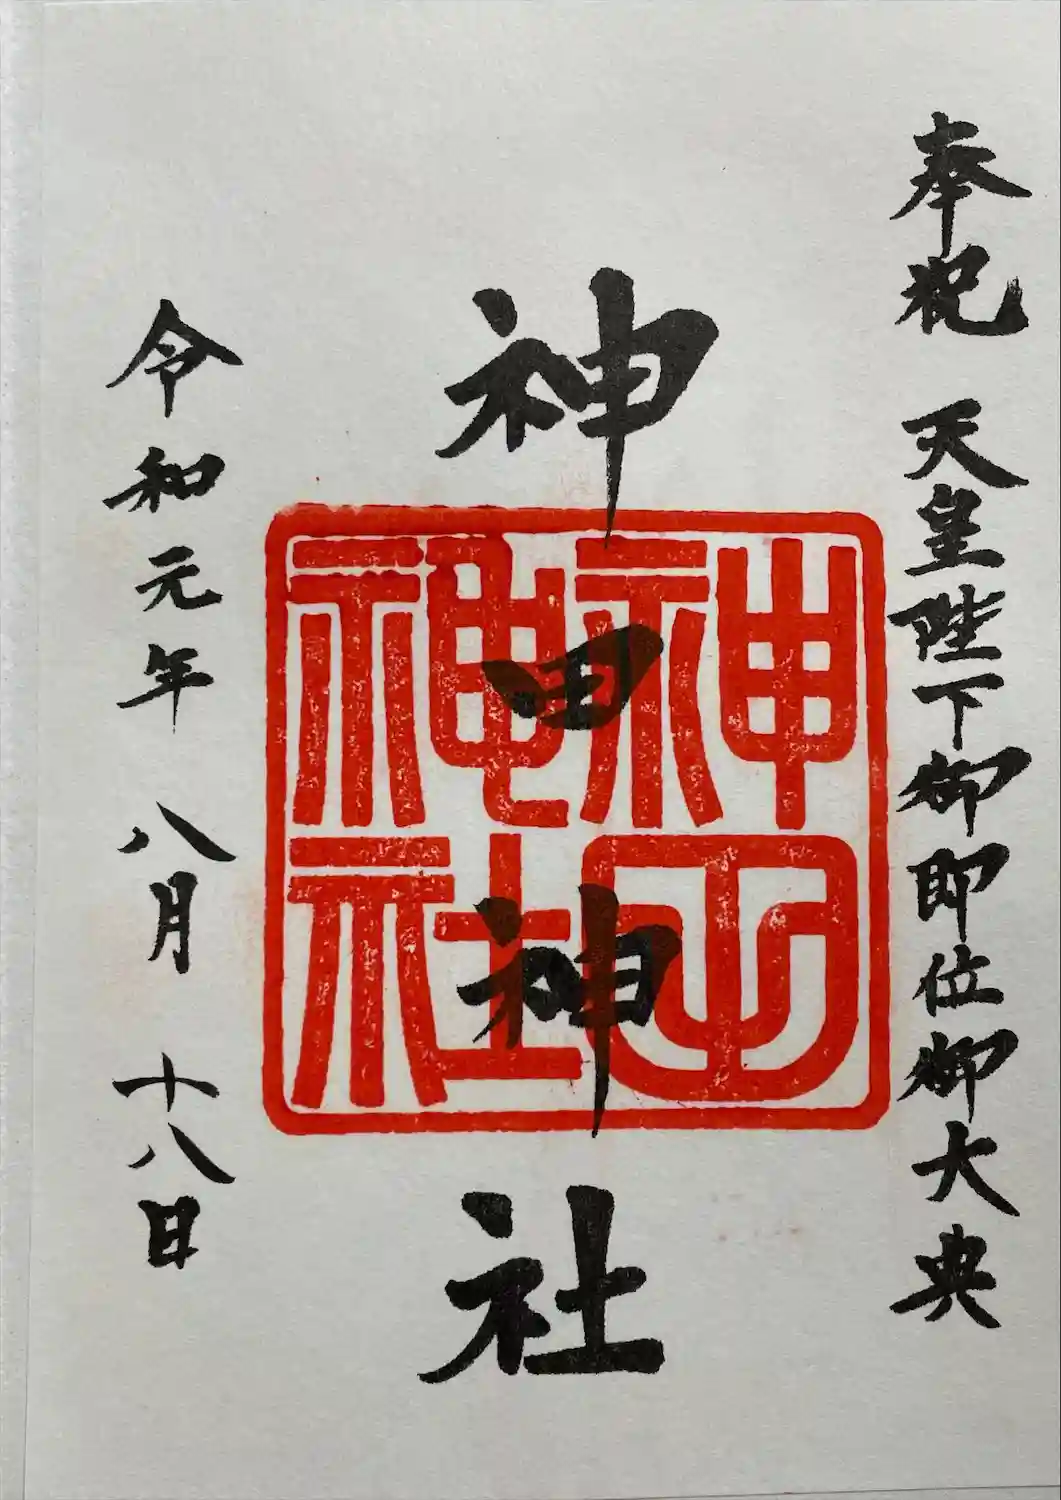 奉祝 天皇陛下御即位御大典
神田神社
神田
神社
令和元年 八月 十八日